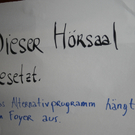 Dieser Hörsaal
esetzt.
s Alternativprogramm hängt
Foyer aus.